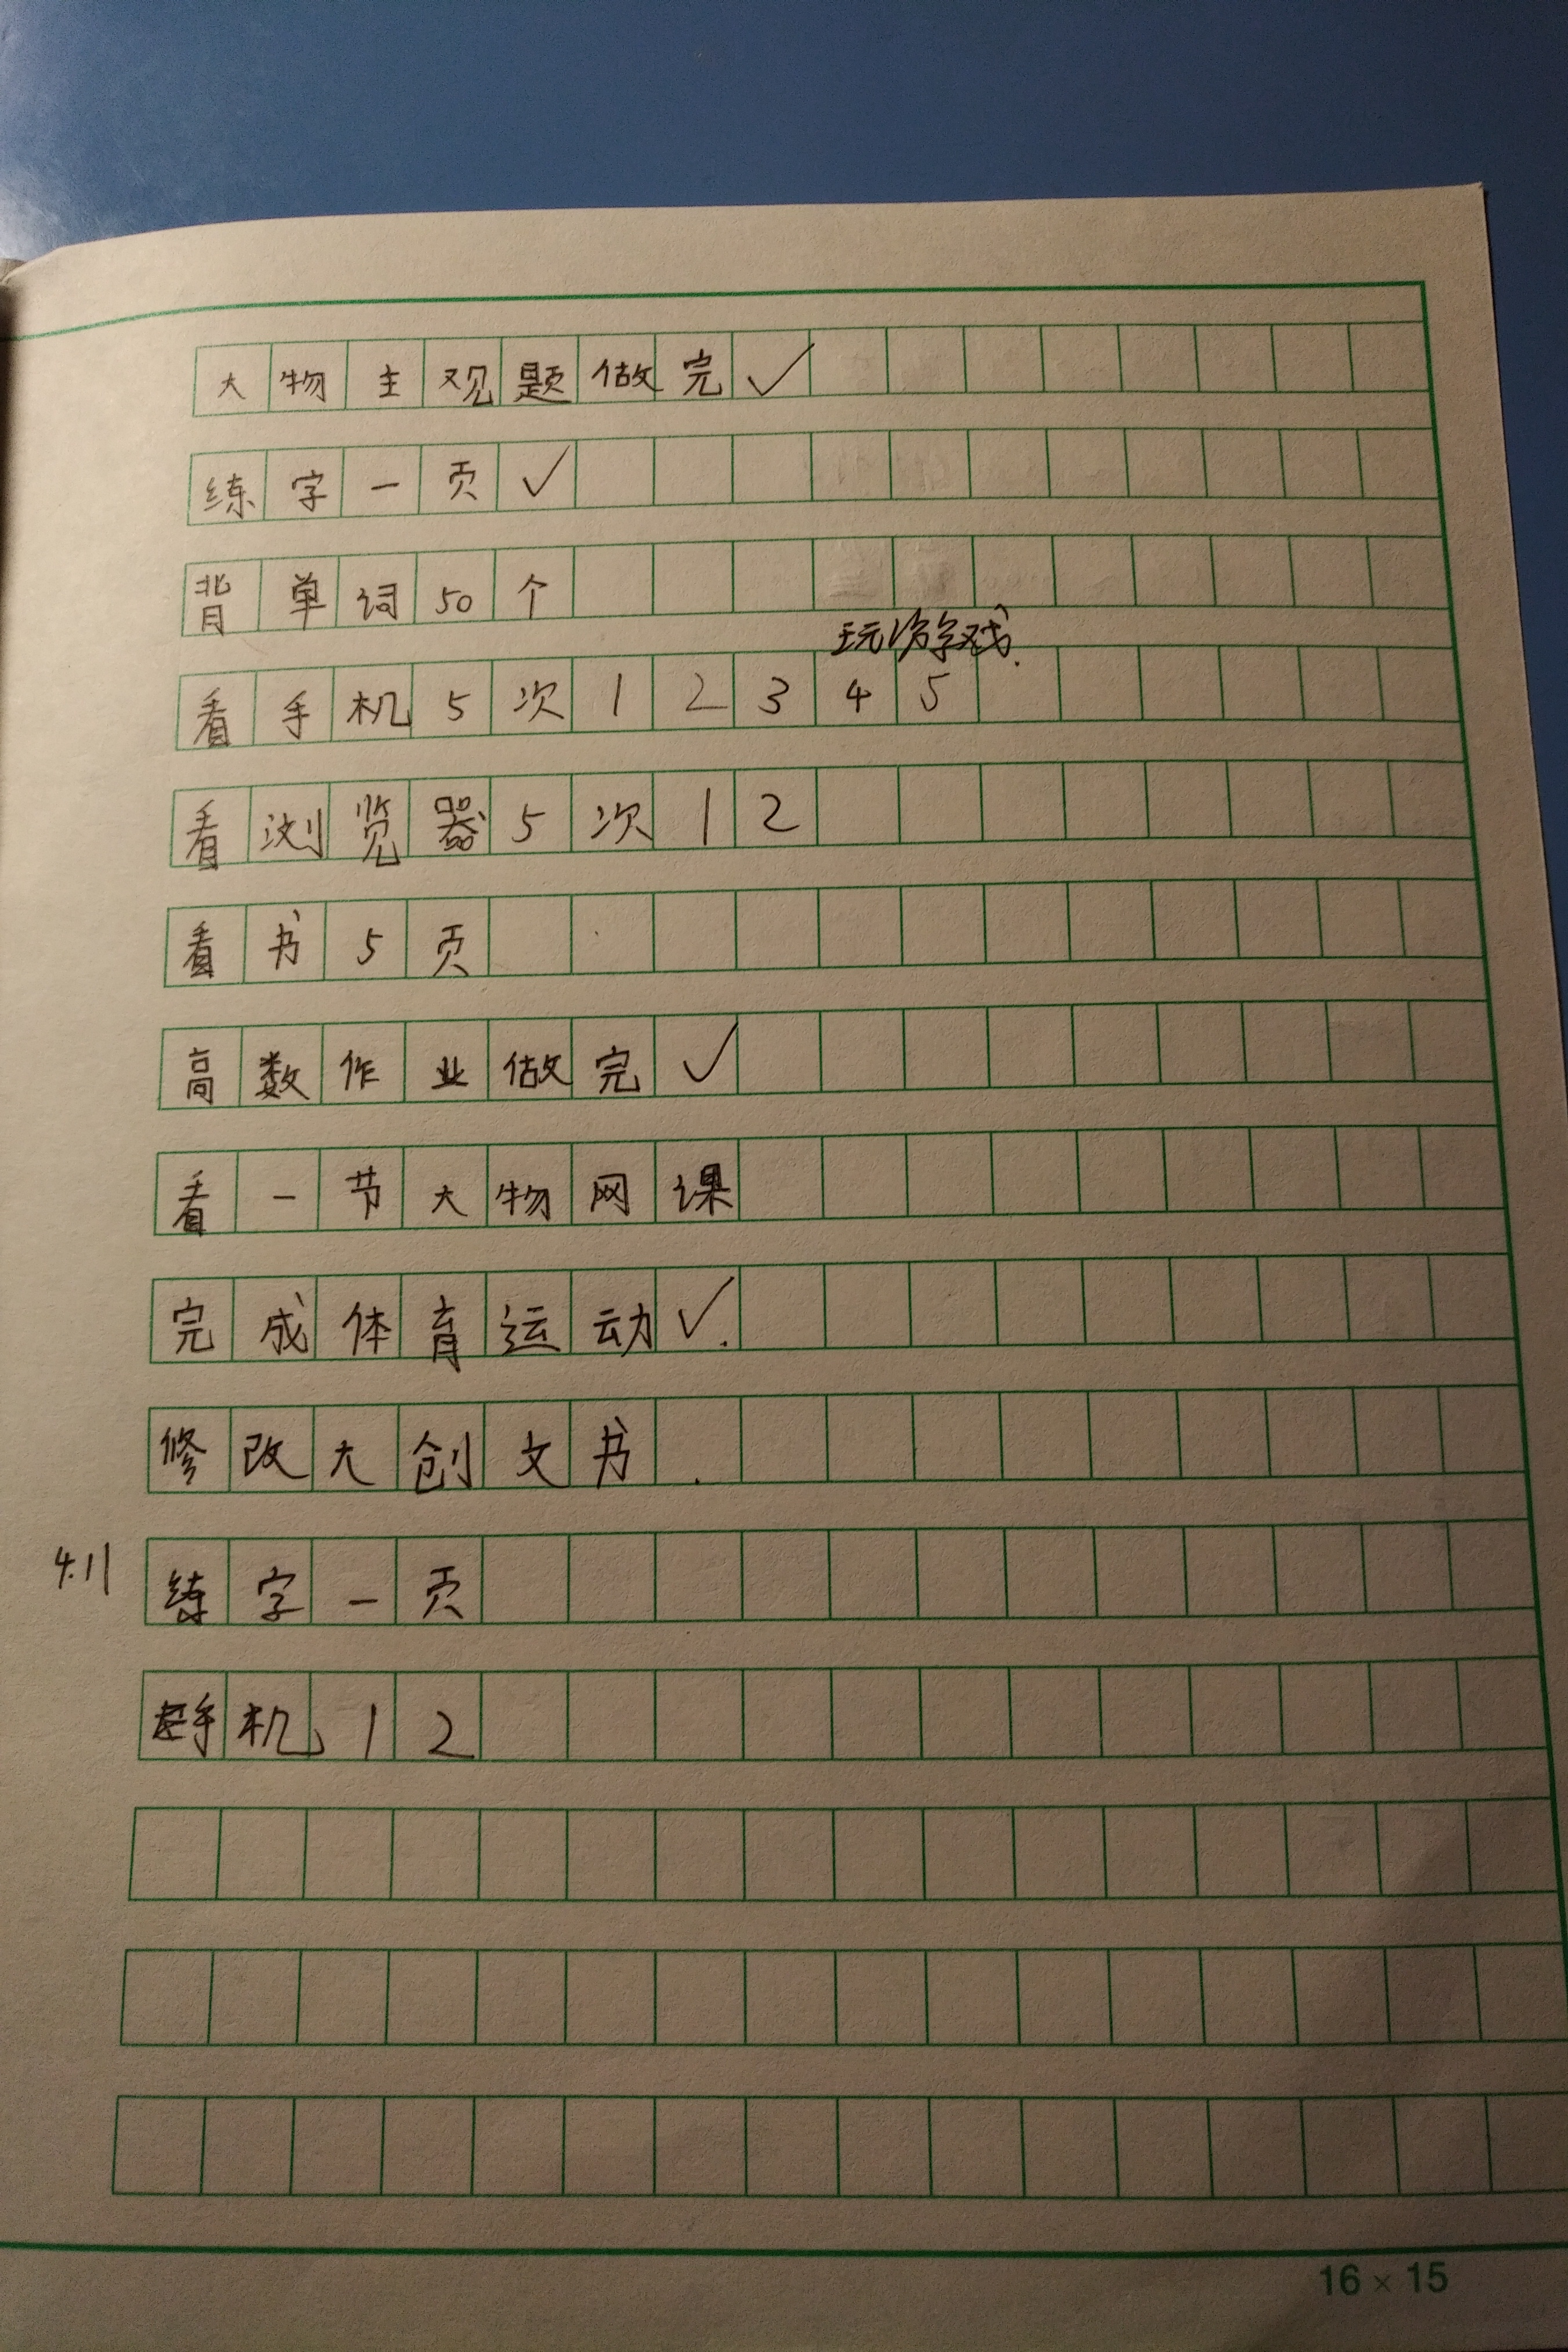 大物主观题做完✓
练字一页✓
背单词50个
玩游戏.
看手机5次12345
看浏览器5次12
看书5页
高数作业做完✓
看一节大物网课
完成体育运动✓.
修改大创文书.
4.11 练字一页
手机12
16×15